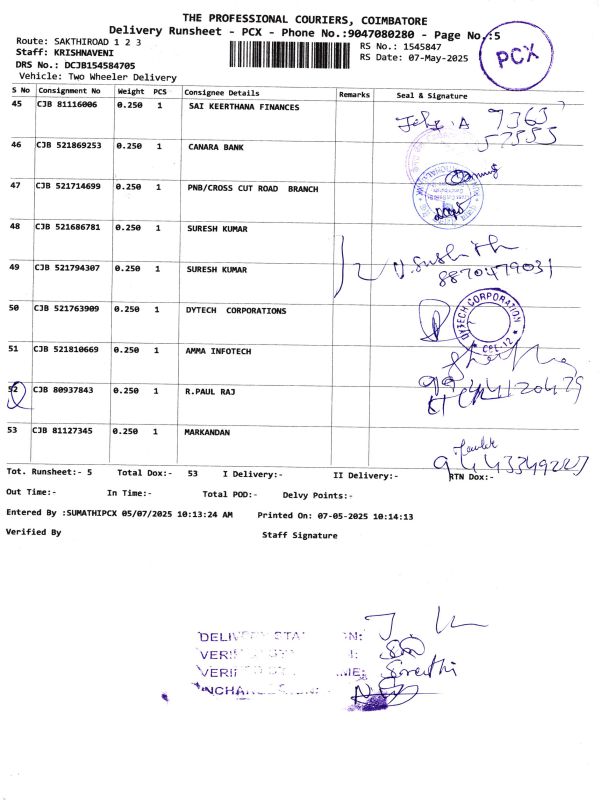 THE PROFESSIONAL COURIERS, COIMBATORE
Delivery Runsheet - PCX - Phone No.:9047080280 - Page No.:5
Route: SAKTHIROAD 1 2 3
RS No.: 1545847
PCX
Staff: KRISHNAVENI
RS Date: 07-May-2025
DRS No.: DCJB154584705
Vehicle: Two Wheeler Delivery
S No Consignment No Weight PCS Consignee Details Remarks Seal & Signature
45 CJB 81116006 0.250 1 SAI KEERTHANA FINANCES
46 CJB 521869253 0.250 1 CANARA BANK
47 CJB 521714699 0.250 1 PNB/CROSS CUT ROAD BRANCH
48 CJB 521686781 0.250 1 SURESH KUMAR
8870479031
49 CJB 521794307 0.250 1 SURESH KUMAR
50 CJB 521763909 0.250 1 DYTECH CORPORATIONS
DYTECH CORPORATION
51 CJB 521810669 0.250 1 AMMA INFOTECH
52 CJB 80937843 0.250 1 R.PAUL RAJ
53 CJB 81127345 0.250 1 MARKANDAN
Tot. Runsheet:- 5 Total Dox:- 53 I Delivery:- II Delivery:- RTN Dox:-
Out Time:- In Time:- Total POD:- Delvy Points:-
Entered By :SUMATHIPCX 05/07/2025 10:13:24 AM Printed On: 07-05-2025 10:14:13
Verified By Staff Signature